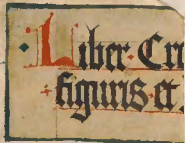 Liber Cr
figuris et